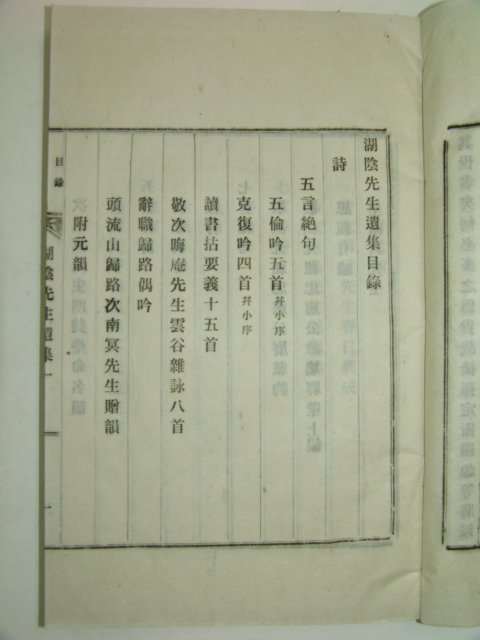 湖陰先生遺集目錄
詩
五言絶句
五倫吟五首 幷小序
克復吟四首 幷小序
讀書拈要義十五首
敬次晦庵先生雲谷雜詠八首
辭職歸路偶吟
頭流山歸路次南冥先生贈韻
附元韻
目錄
湖陰先生遺集一
一